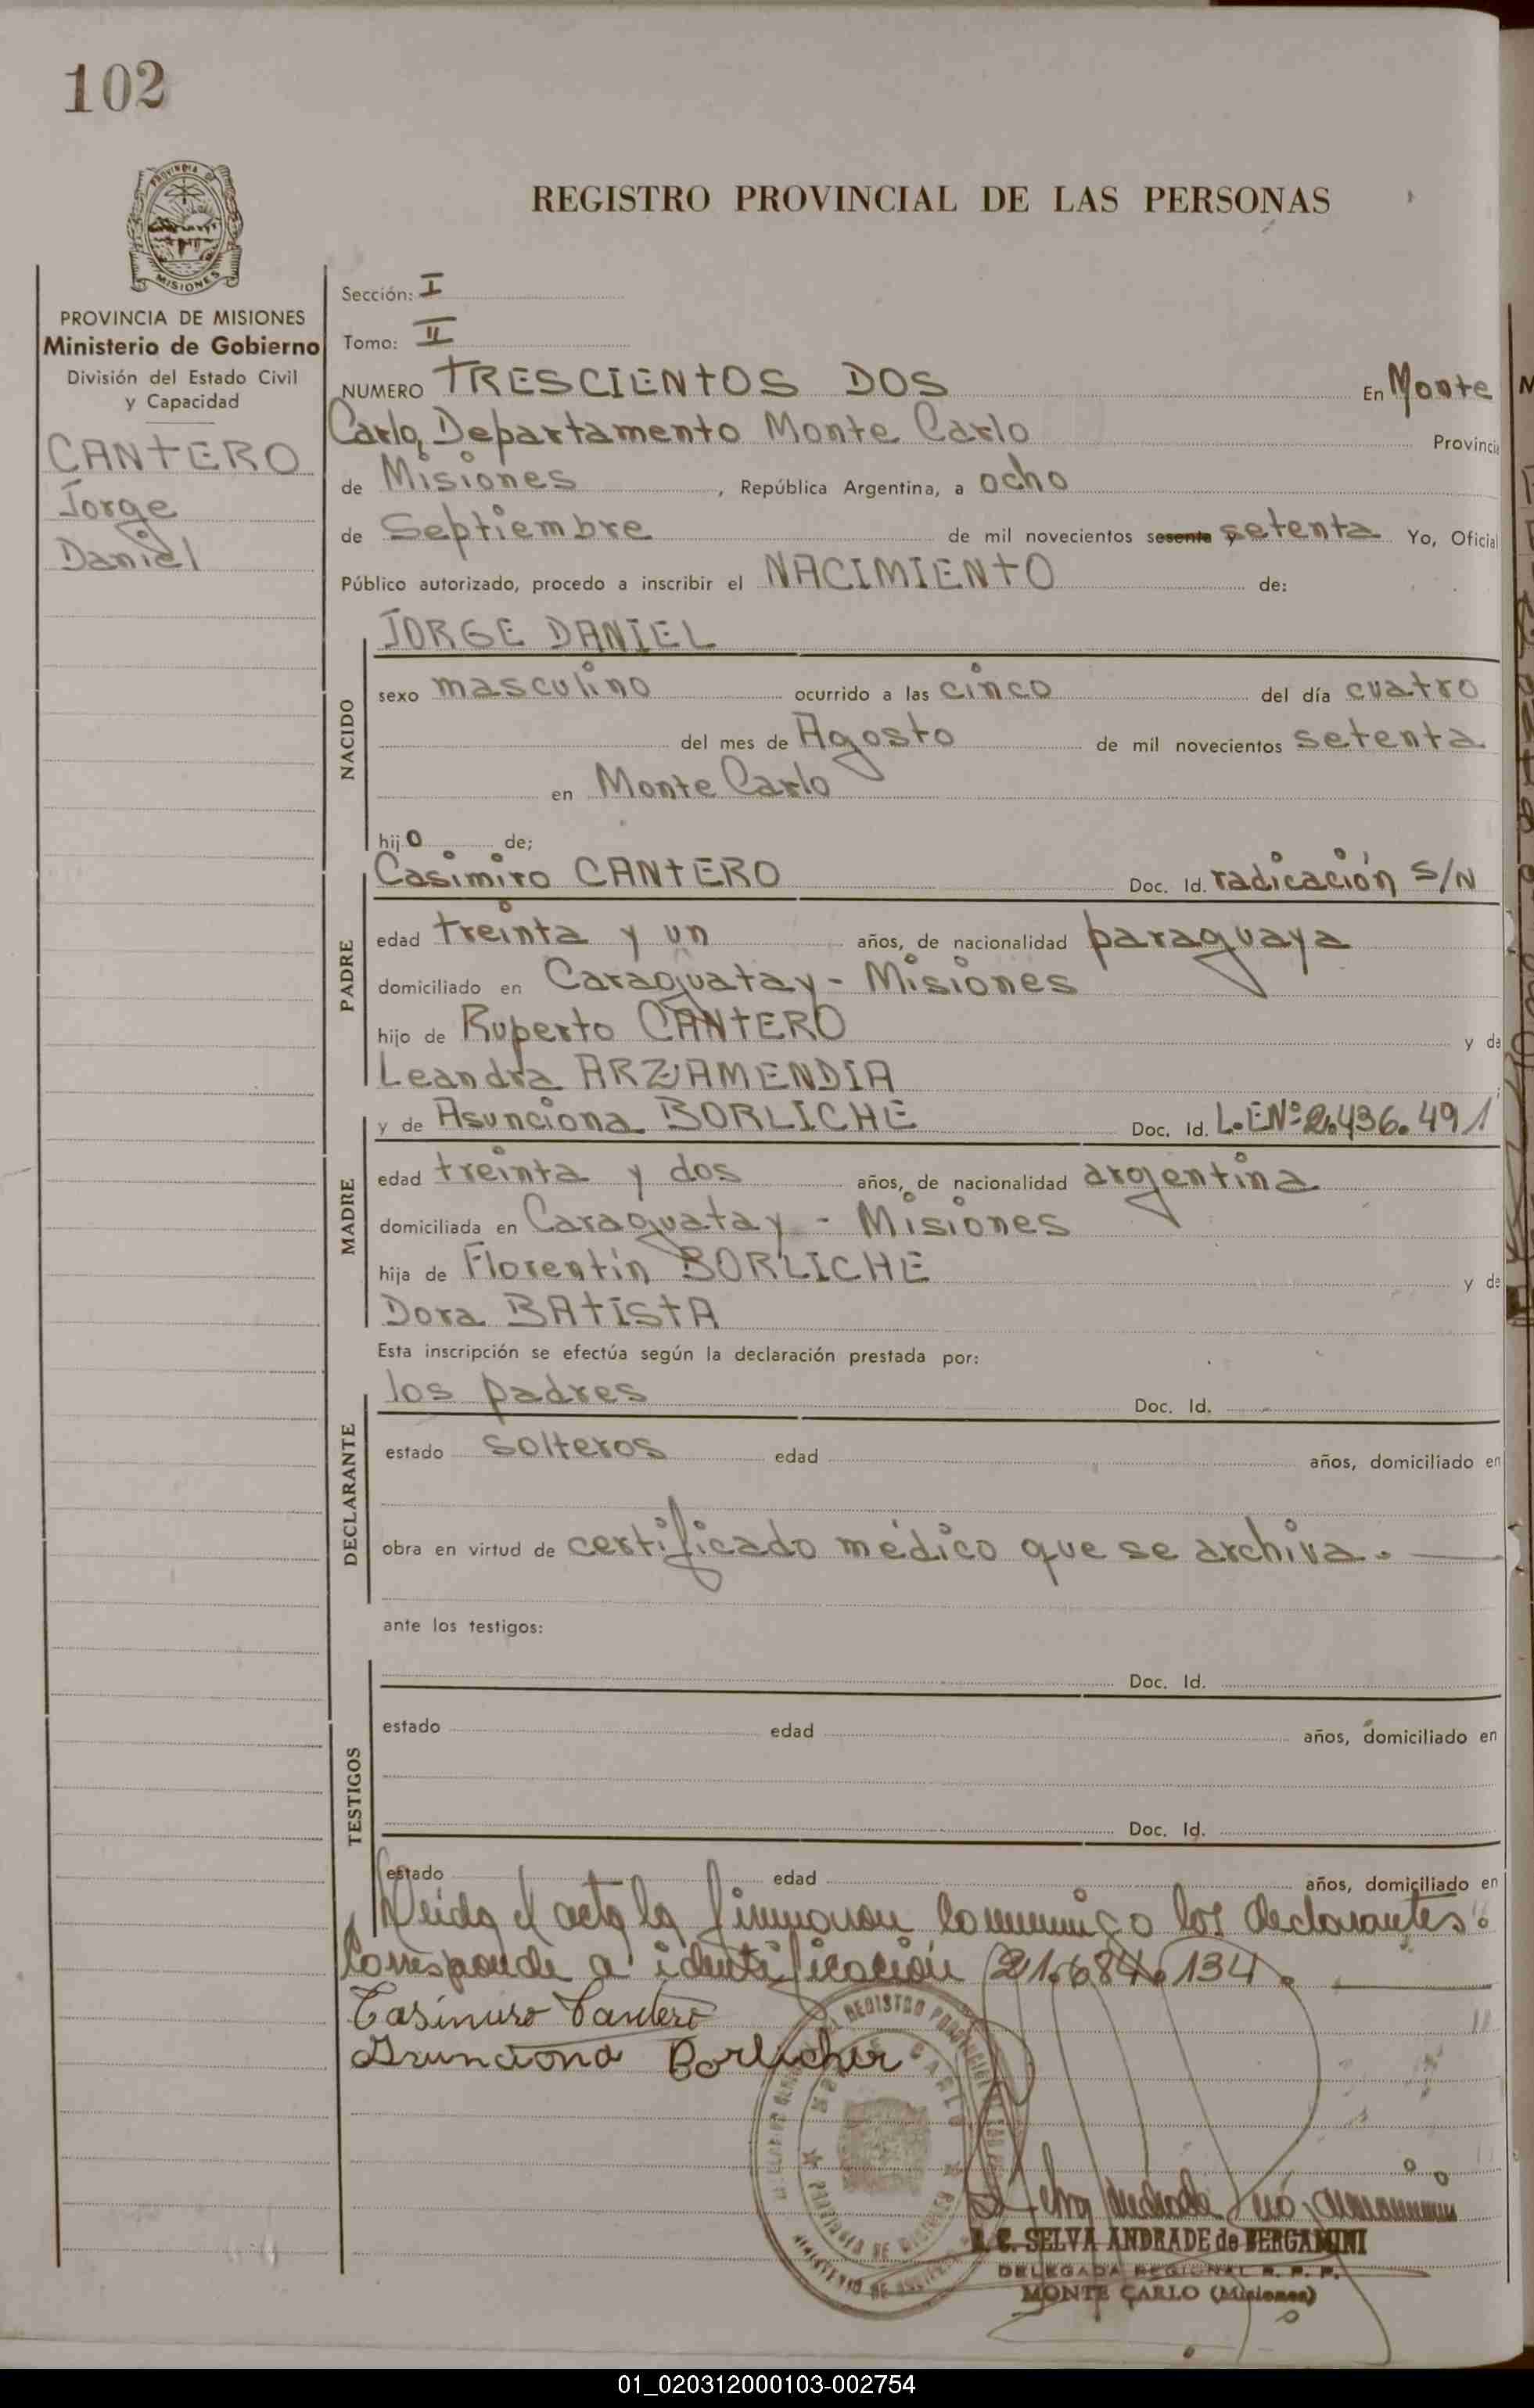 102
PROVINCIA
MISIONES
REGISTRO PROVINCIAL DE LAS PERSONAS
PROVINCIA DE MISIONES
Ministerio de Gobierno
División del Estado Civil
y Capacidad
CANTERO
Jorge
Daniel
Sección: I
Tomo: II
NUMERO TRESCIENTOS DOS En Monte
Carlo, Departamento Monte Carlo Provincia
de Misiones, República Argentina, a ocho
de Septiembre de mil novecientos sesenta y setenta Yo, Oficial
Público autorizado, procedo a inscribir el NACIMIENTO de:
NACIDO
JORGE DANIEL
sexo masculino ocurrido a las cinco del día cuatro
del mes de Agosto de mil novecientos setenta
en Monte Carlo
hijo de;
PADRE
Casimiro CANTERO Doc. Id. radicación S/N
edad treinta y un años, de nacionalidad paraguaya
domiciliado en Caraguatay - Misiones
hijo de Ruperto CANTERO y de
Leandra ARZAMENDIA
MADRE
y de Asunciona BORLICHE Doc. Id. L.E Nº 2.436.491
edad treinta y dos años, de nacionalidad argentina
domiciliada en Caraguatay - Misiones
hija de Florentín BORLICHE y de
Dora BATISTA
Esta inscripción se efectúa según la declaración prestada por:
DECLARANTE
los padres Doc. Id.
estado solteros edad años, domiciliado en
obra en virtud de certificado médico que se archiva.
ante los testigos:
TESTIGOS
Doc. Id.
estado edad años, domiciliado en
Doc. Id.
estado edad años, domiciliado en
Leida el acta la firmaron conmigo los declarantes.
Corresponde a identificación 21.684.134.
Casimiro Cantero
Asunciona Borlicher
S. C. SELVA ANDRADE de BERGAMINI
DELEGADA REGIONAL R. P. P.
MONTE CARLO (Misiones)
01_020312000103-002754